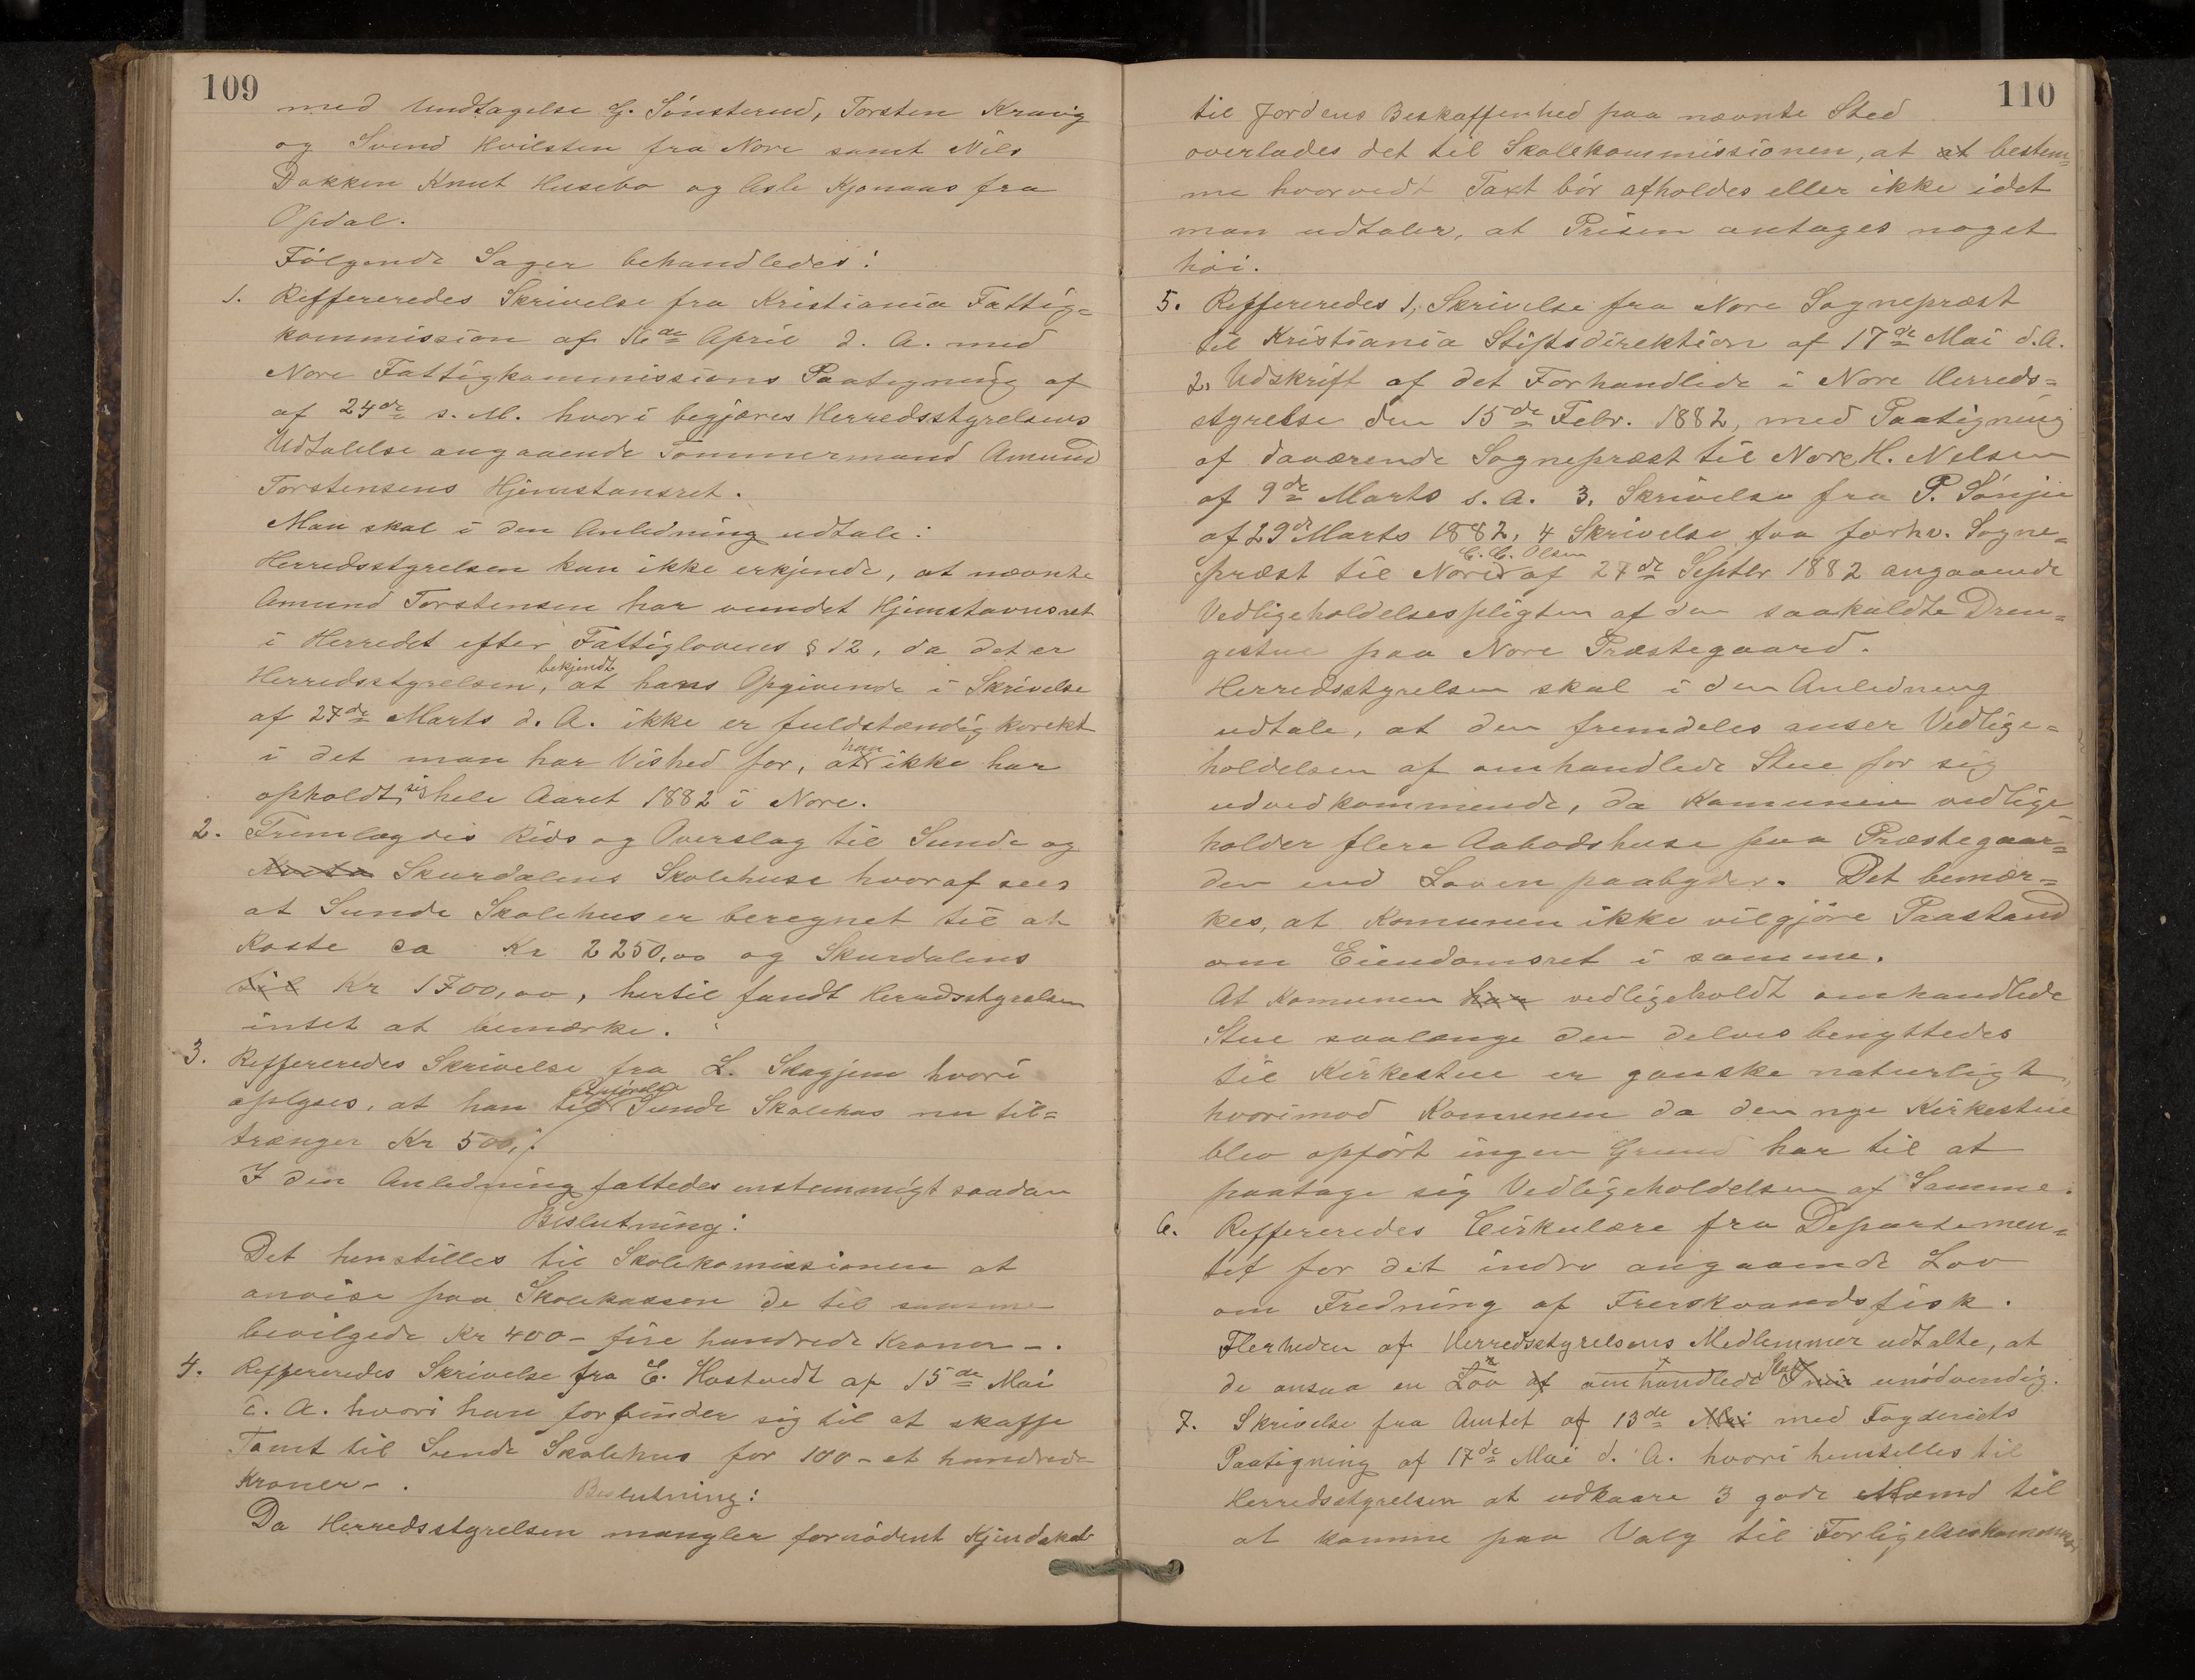 109
med Undtagelse G. Sönsterud, Torsten Kravig
og Svend Hvilsten fra Nore samt Nils
Dokken Knut Husebo og Asle Kjonaas fra
Opdal.
Fölgende Sager behandledes:
1. Reffereredes Skrivelse fra Kristiania Fattig=
kommission af 16de April d. A. med
Nore Fattigkommissions Paategning af
af 24de s. M. hvori begjæres Herredsstyrelsens
Udtalelse angaaende Tömmermand Amund
Torstensens Hjemstansret.
Man skal i den Anledning udtale:
Herredsstyrelsen kan ikke erkjende, at nævnte
Amund Torstensen har vundet Hjemstavnsret
i Herredet efter Fattiglovens § 12, da det er
Herredsstyrelsen, bekjendt at hans Opgivende i Skrivelse
af 27de Marts d. A. ikke er fuldstændig korekt
i det man har Vished for, at han ikke har
opholdt sig hele Aaret 1882 i Nore.
2. Fremlagdes Rids og Overslag til Sunde og
Skurdalens Skolehuse hvoraf sees
at Sunde Skolehus er beregnet til at
koste ca Kr 2250,00 og Skurdalens
til Kr 1700,00, hertil fandt Heredsstyrelsen
intet at bemærke.
3. Reffereredes Skrivelse fra L. Skagjem hvori
oplyses, at han til Opförelse Sunde Skolehus nu til=
trænger Kr 500,-
I den Anledning fattedes enstemmigt saadan
Beslutning:
Det henstilles til Skolekomissionen at
anvise paa Skolekassen de til samme
bevilgede Kr 400 - fire hundrede Kroner -.
4. Reffereredes Skrivelse fra E. Hostvedt af 15de Mai
d. A. hvori han forbinder sig til at skaffe
Tomt til Sunde Skolehus for 100 - et hundrede
Kroner -.
Beslutning:
Da Herredsstyrelsen mangler fornödent Kjendskab
110
til Jordens Beskaffenhed paa nævnte Sted
overlades det til Skolekommissionen, at at bestem=
me hvorvedt Taxt bör afholdes eller ikke idet
man udtaler, at Prisen antages noget
höi.
5. Reffereredes 1, Skrivelse fra Nore Sognepræst
til Kristiania Stiftsdirektion af 17de Mai d.A.
2, Udskrift af det Forhandlede i Nore Herreds=
styrelse den 15de Febr. 1882, med Paategning
af daværende Sognepræst til Nore H. Nelsen
af 9de Marts s. A. 3, Skrivelse fra P. Sönju
af 29de Marts 1882, 4 Skrivelse fra forhv. Sogne=
præst til Nore C. C. Olsen af 27de Septbr 1882 angaaende
Vedligeholdelsespligten af den saakaldte Dren=
gestue paa Nore Præstegaard.
Herredsstyrelsen skal i den Anledning
udtale, at den fremdeles anser Vedlige=
holdelsen af omhandlede Stue for sig
udvedkommende, da Komunen vedlige=
holder flere Aabodshuse paa Præstegaar=
den end Loven paabyder. Det bemær=
kes, at Komunen ikke vil gjöre Paastand
om Eiendomsret i samme.
At Komunen har vedligeholdt omhandlede
Stue saalænge den delvis benyttedes
til Kirkestue er ganske naturligt,
hvorimod Komunen da den nye Kirkestue
blev opfört ingen Grund har til at
paatage sig Vedligeholdelsen af Samme.
6. Reffereredes Cirkulære fra Departemen=
tet for det indre angaaende Lov
om Fredning af Ferskvandsfisk.
Flerheden af Herredsstyrelsens Medlemmer udtalte, at
de ansaa en Lov af omhandlede unödvendig.
7. Skrivelse fra Amtet af 13de Mai med Fogderiets
Paategning af 17de Mai d. A. hvori henstilles til
Herredsstyrelsen at udkaare 3 gode Mænd til
at komme paa Valg til Forligelseskommis